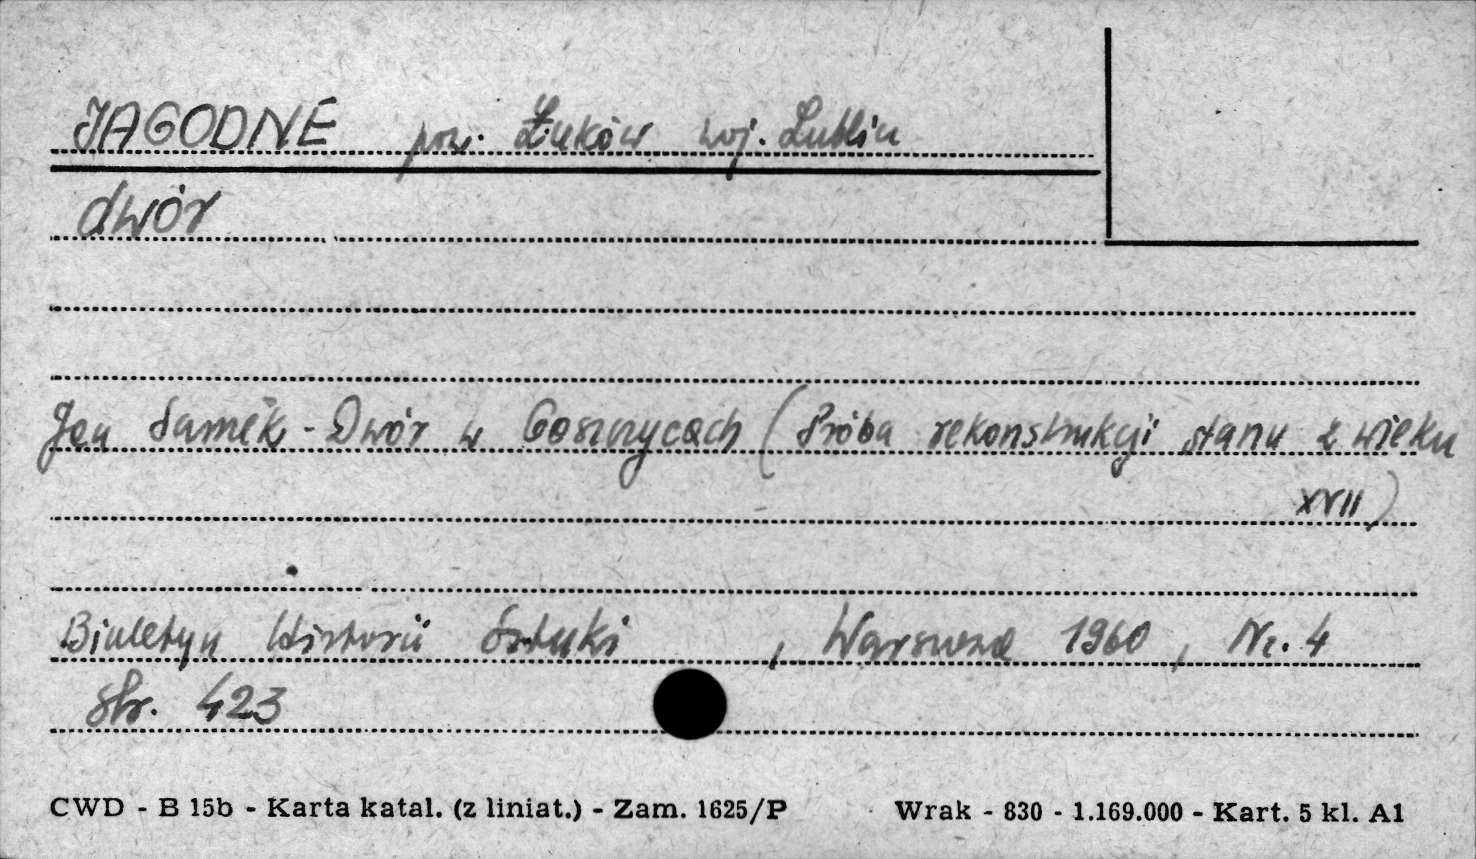 JAGODNE pow. Łuków woj. Lublin
dwór
Jan Samek - Dwór w Goszycach (Próba rekonstrukcji stanu z wieku
XVII)
Biuletyn Historii Sztuki , Warszawa 1960, Nr. 4
str. 423
CWD - B 15b - Karta katal. (z liniat.) - Zam. 1625/P Wrak - 830 - 1.169.000 - Kart. 5 kl. A1